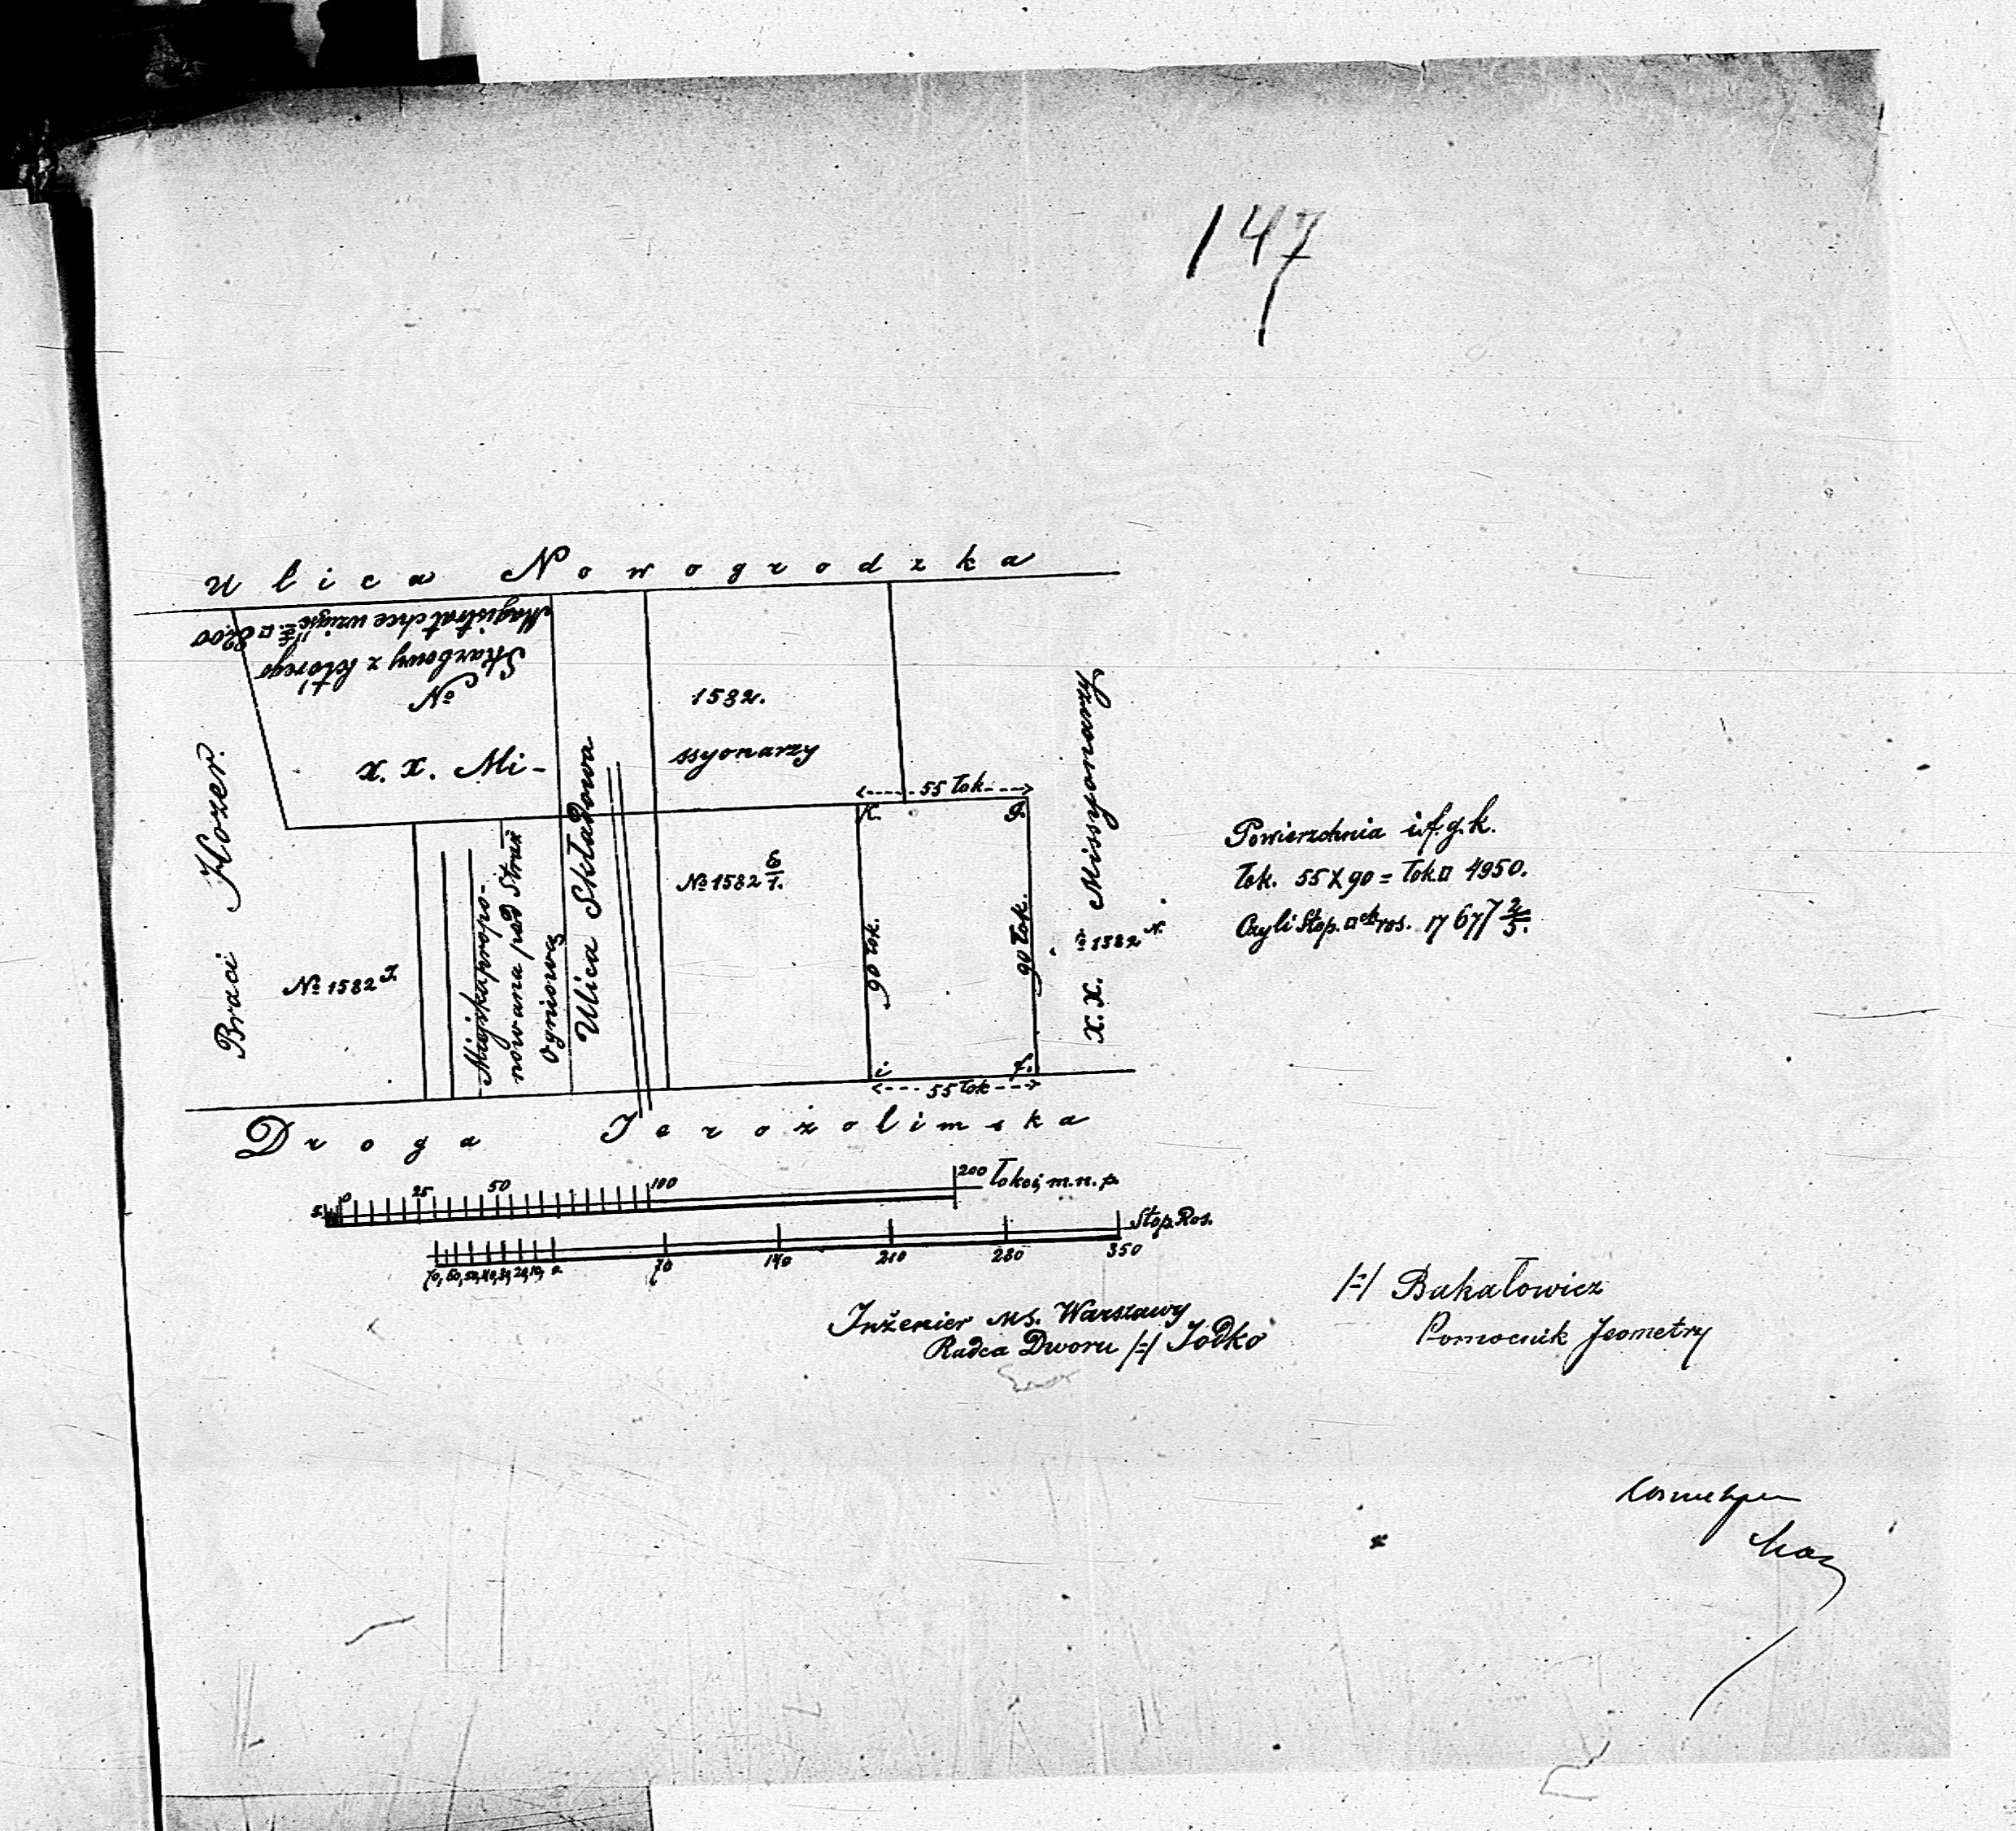 147
Ulica Nowogrodzka
Magistrat chce wziąść łk. □ 8200
Skarbowy z którego
No
1582.
X. X. Mi-
ssyonarzy
Braci Hozer.
No 1582 J.
Miejska propo-
nowana pod Straż
Ogniową
Ulica Składowa
No 1582
55 łok.
K. g.
90 łok.
90 łok.
i f.
55 łok.
X. X. Missyonarzy
1582
Powierzchnia i.f.g.k.
łok. 55 X 90 = łok □ 4950.
Czyli Stop. □ ch ros. 17677 2/3.
Droga Jerozolimska
5 0 25 50 100 200 łokci, m. n. p.
70, 60, 50, 40, 30, 20, 10, 0 70 140 210 280 350 Stop. Ros.
Inżenier M S. Warszawy
Radca Dworu /-/ Jodko
/-/ Bakałowicz
Pomocnik Jeometry